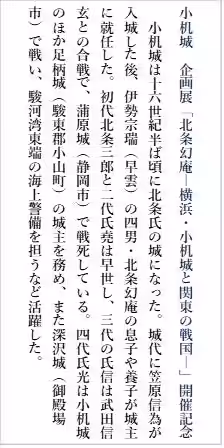 小机城　企画展「北条幻庵―横浜・小机城と関東の戦国―」開催記念
　小机城は十六世紀半ば頃に北条氏の城になった。城代に笠原信為が
入城した後、伊勢宗瑞（早雲）の四男・北条幻庵の息子や養子が城主
に就任した。初代北条三郎と二代氏堯は早世し、三代の氏信は武田信
玄との合戦で、蒲原城（静岡市）で戦死している。四代氏光は小机城
のほか足柄城（駿東郡小山町）の城主を務め、また深沢城（御殿場
市）で戦い、駿河湾東端の海上警備を担うなど活躍した。